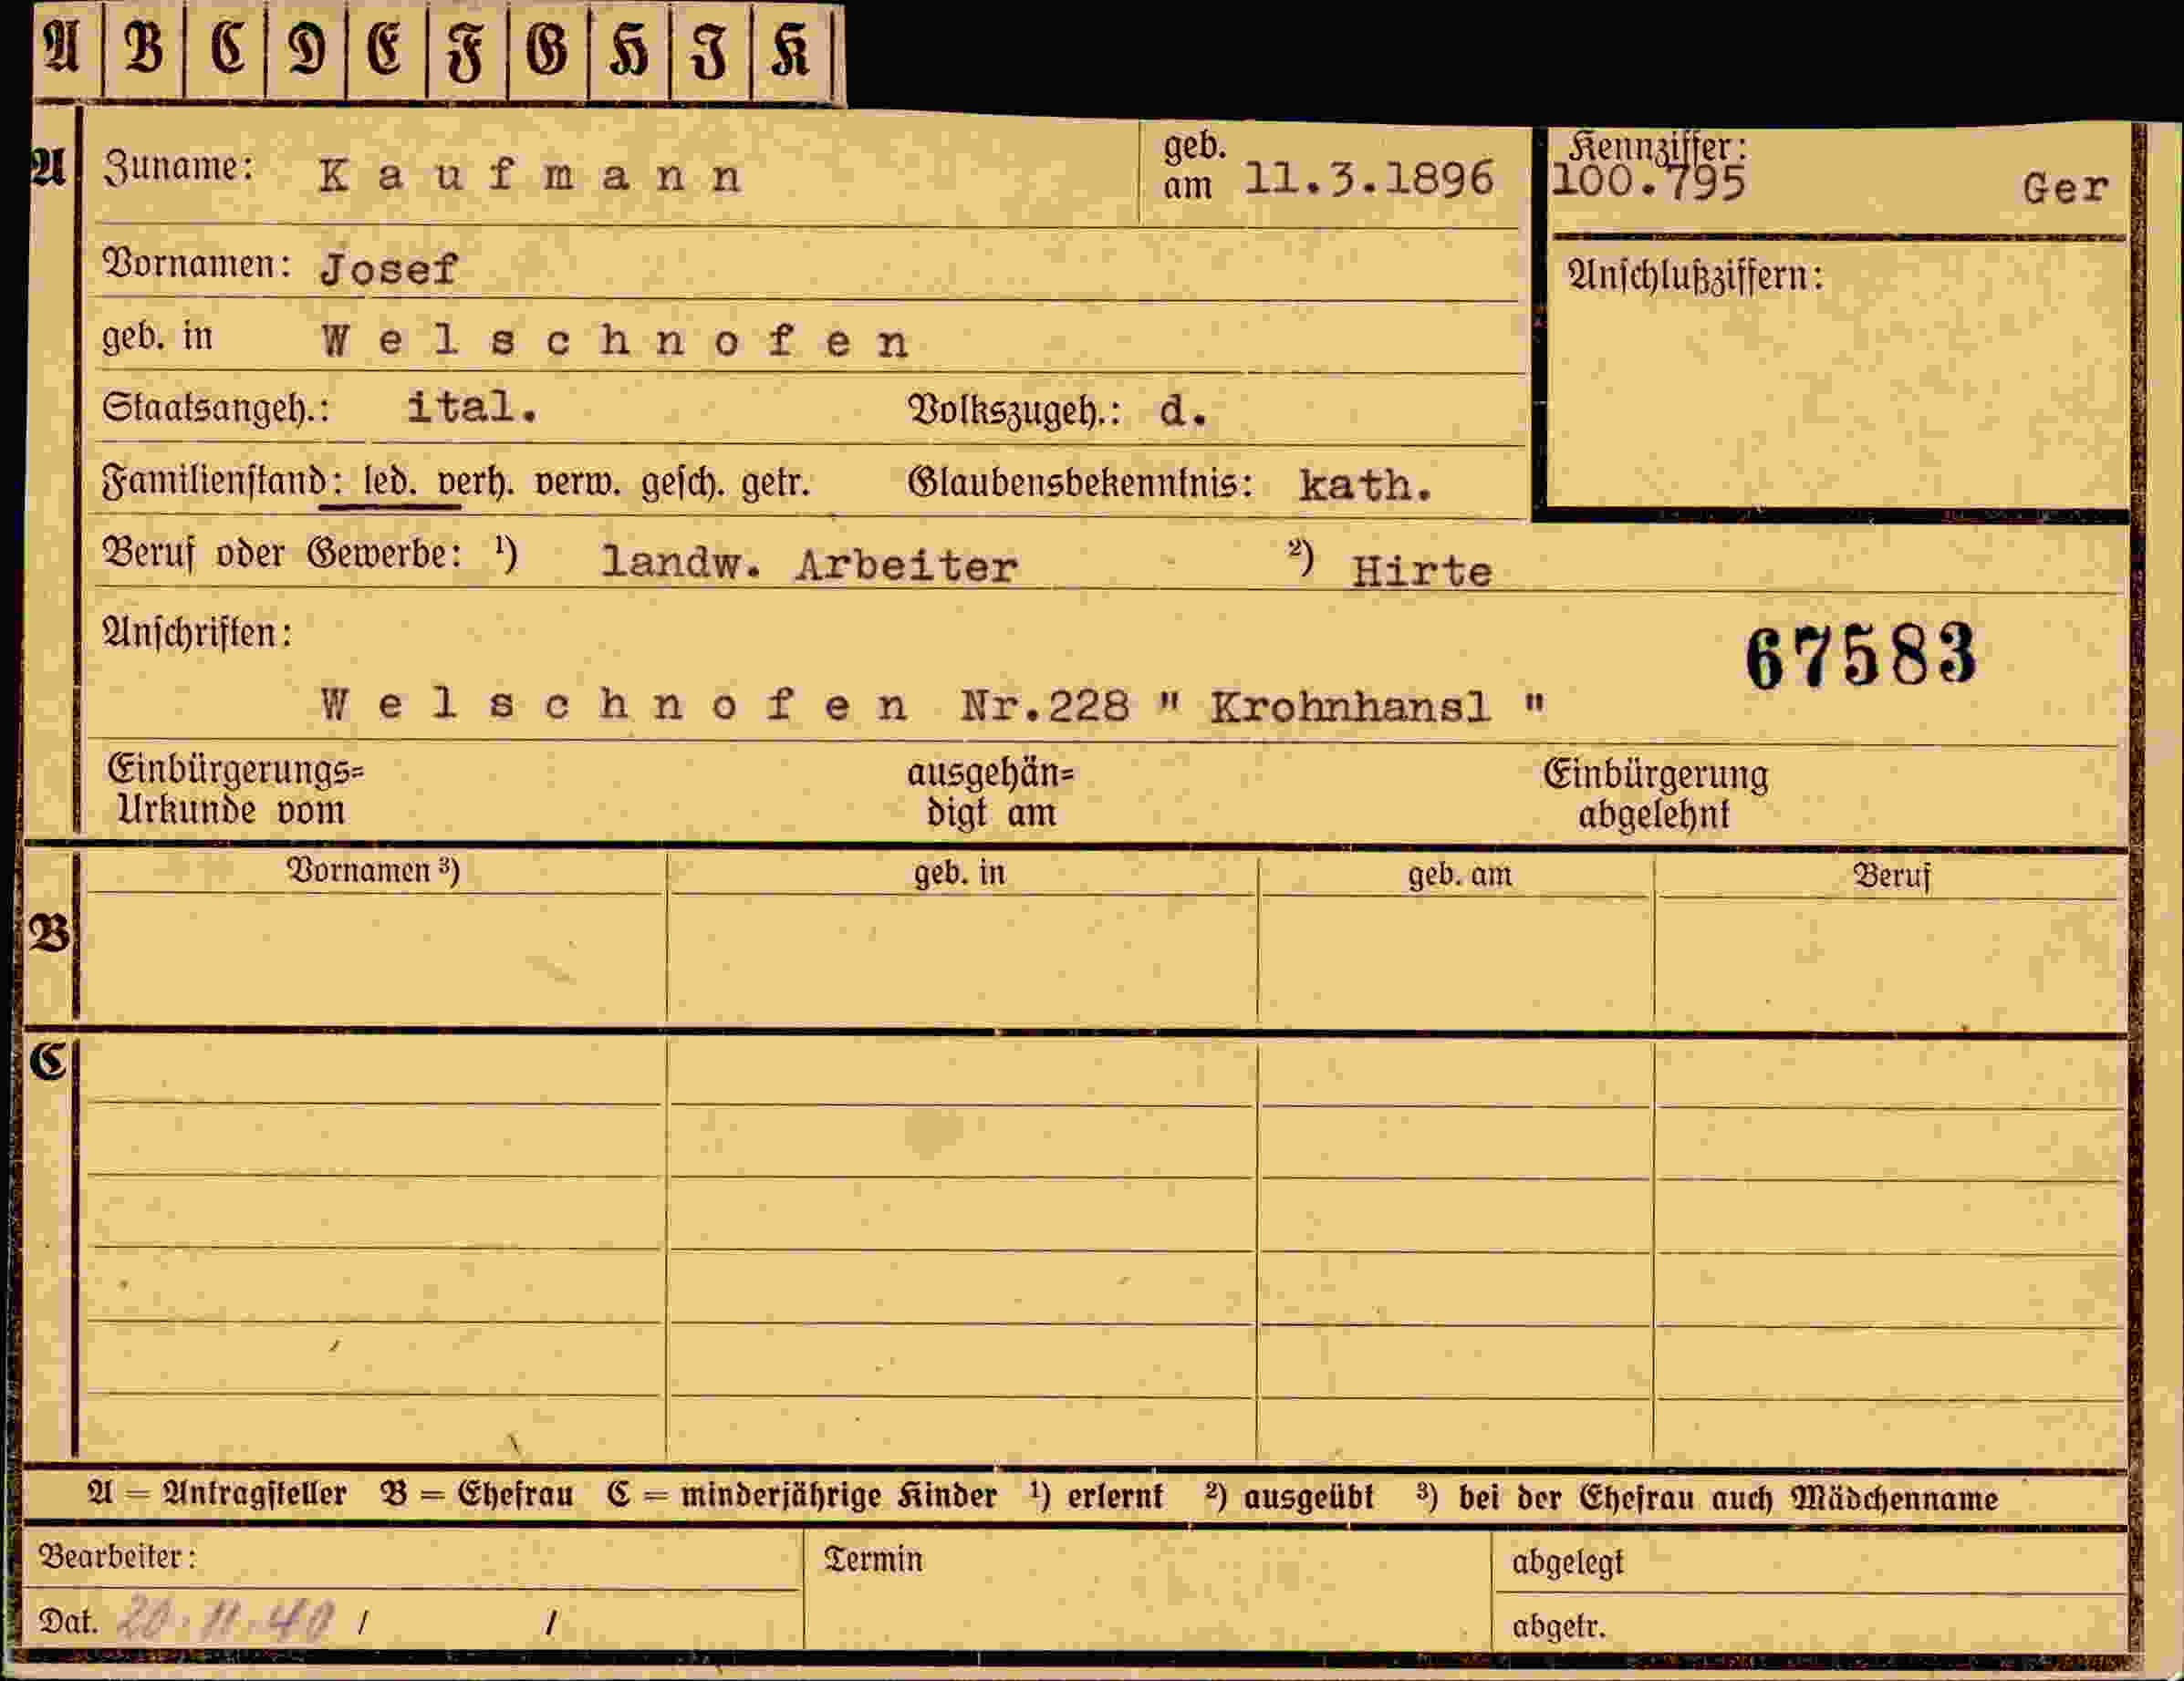 A B C D E F G H I K
A Zuname: Kaufmann geb. am 11.3.1896 Kennziffer: 100.795 Ger
Vornamen: Josef Anschlußziffern:
geb. in Welschnofen
Staatsangeh.: ital. Volkszugeh.: d.
Familienstand: led. verh. verw. gesch. getr. Glaubensbekenntnis: kath.
Beruf oder Gewerbe: ¹) landw. Arbeiter ²) Hirte
Anschriften: 67583
Welschnofen Nr.228 " Krohnhansl "
Einbürgerungs= ausgehän= Einbürgerung
Urkunde vom digt am abgelehnt
Vornamen ³) geb. in geb. am Beruf
B
C
A = Antragsteller B = Ehefrau C = minderjährige Kinder ¹) erlernt ²) ausgeübt ³) bei der Ehefrau auch Mädchenname
Bearbeiter: Termin abgelegt
Dat. 20.11.40 / / abgetr.